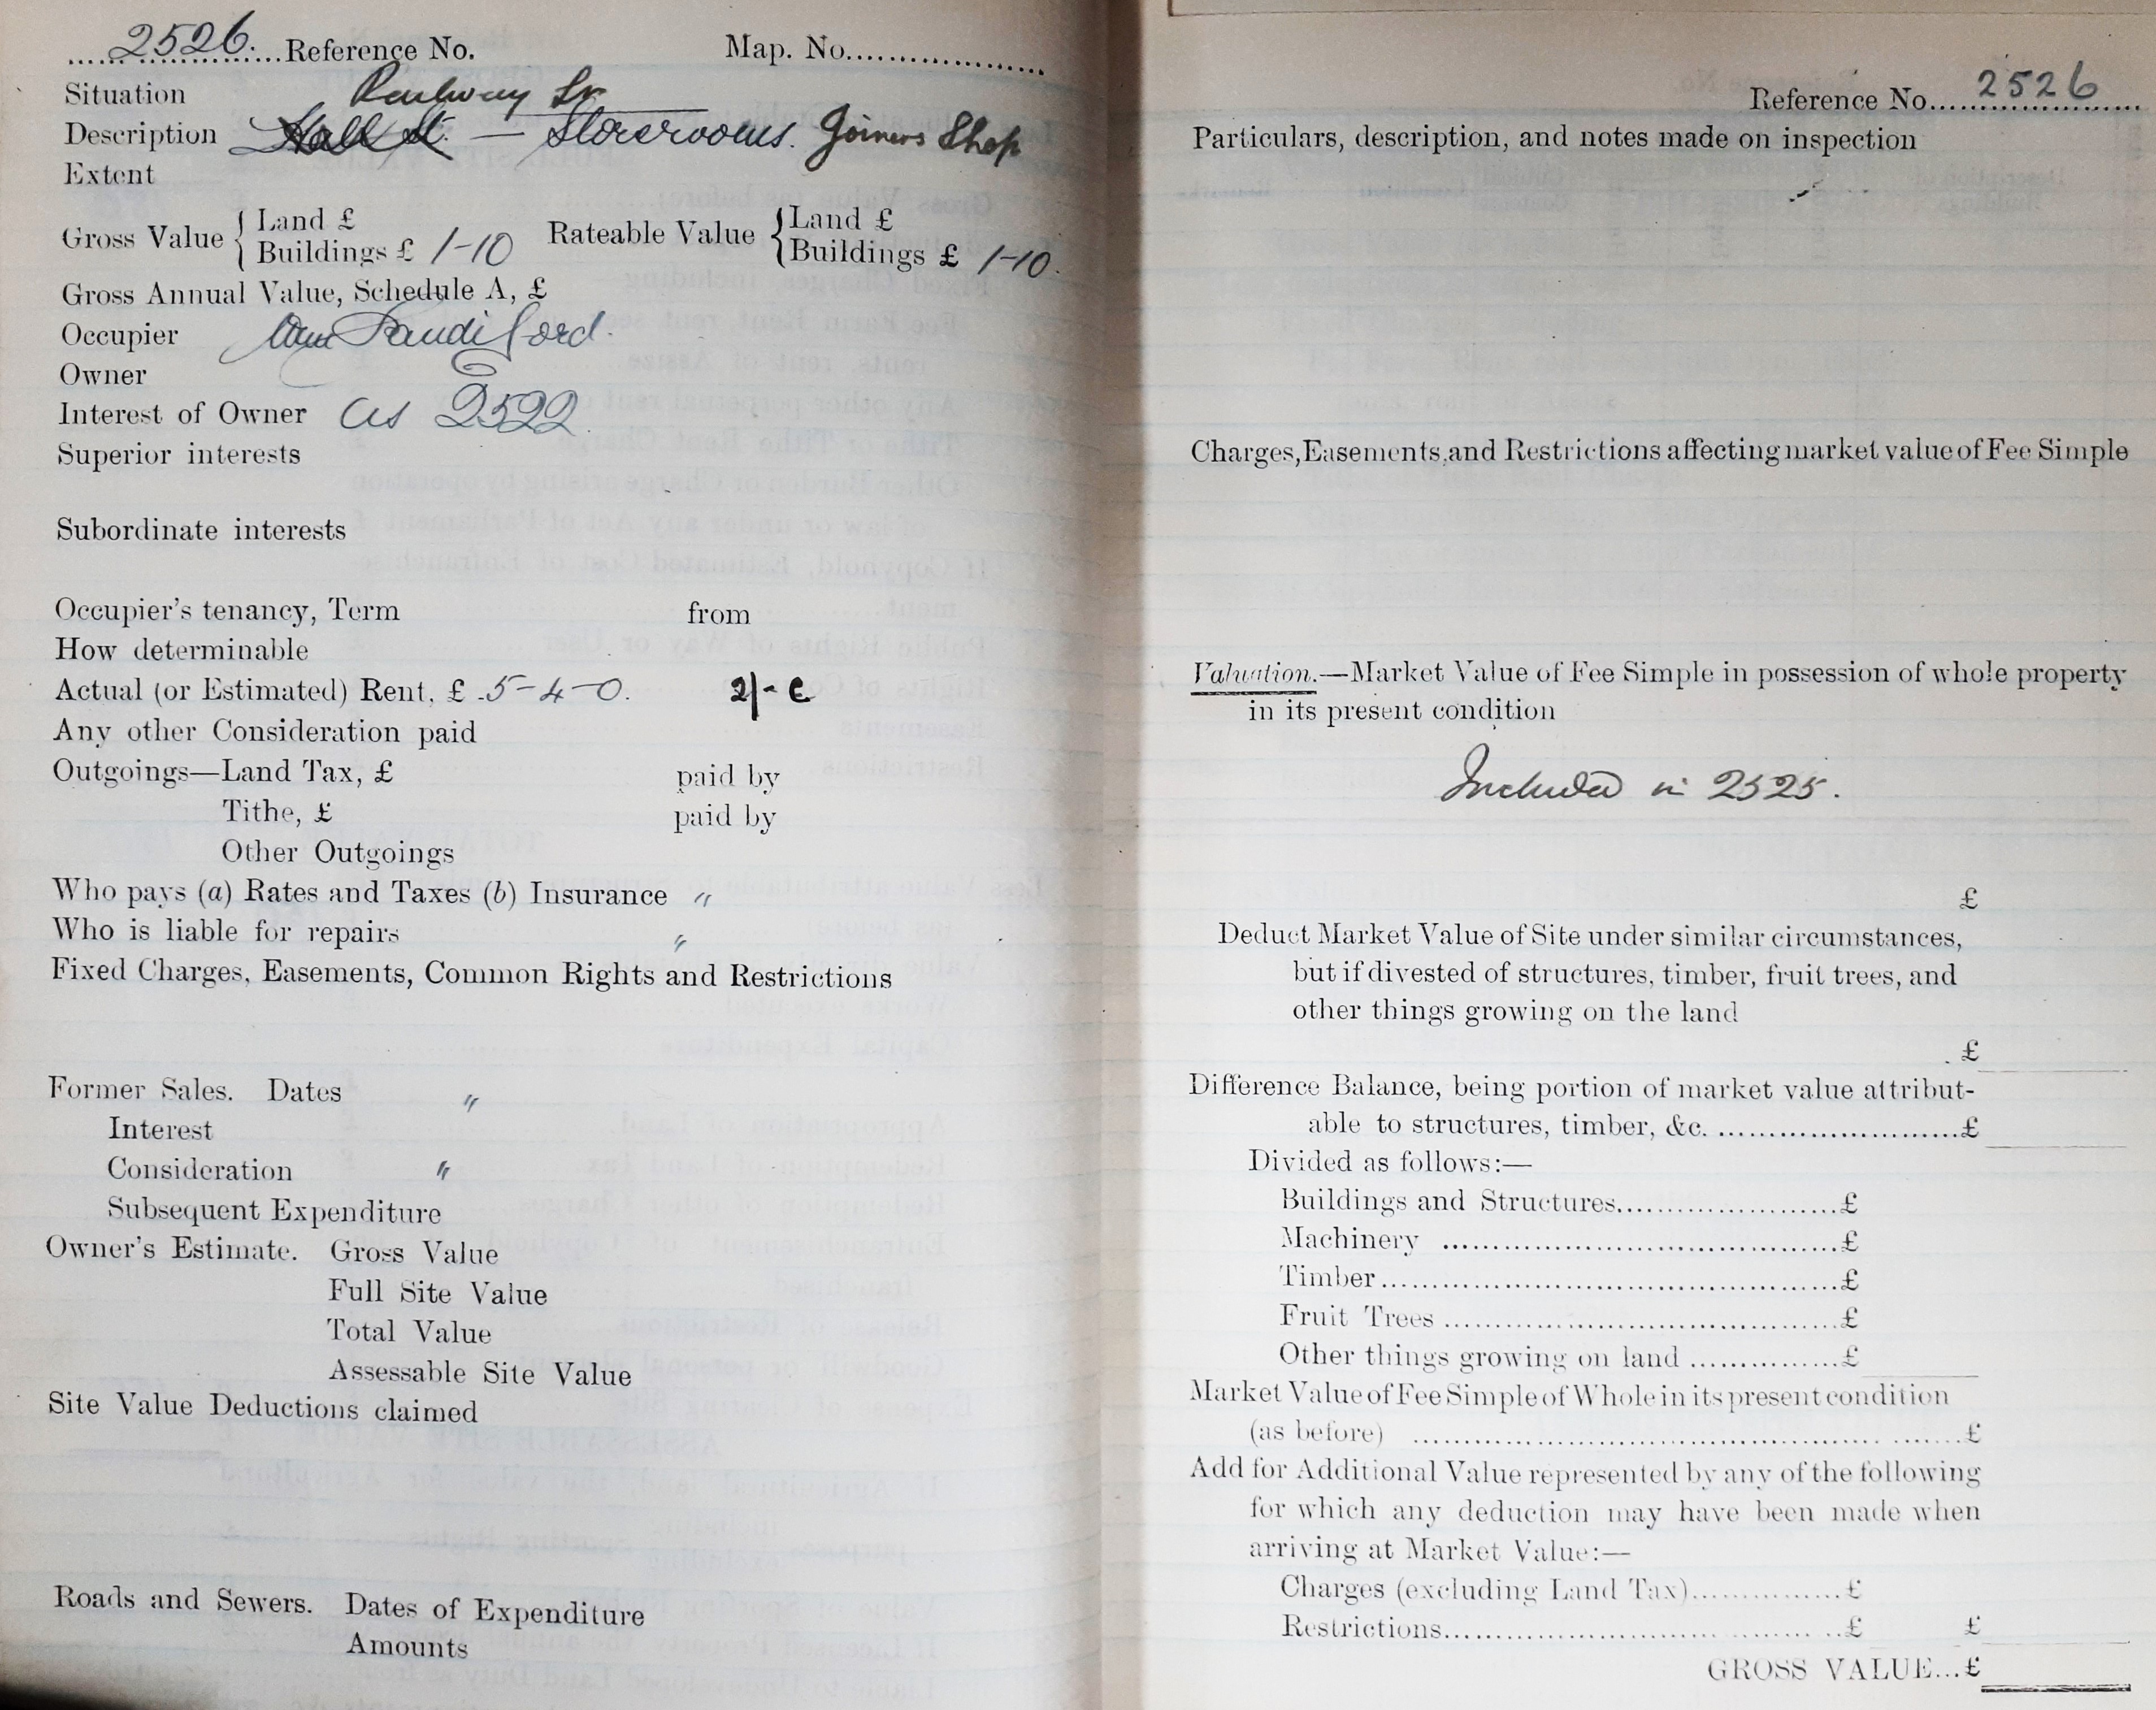 2526. Reference No. Map. No.
Situation Railway St
Description Hall St. — Storerooms. Joiners Shop
Extent
Gross Value { Land £ Rateable Value { Land £
Buildings £ 1-10 Buildings £ 1-10.
Gross Annual Value, Schedule A, £
Occupier Wm Sandiford.
Owner
Interest of Owner as 2522.
Superior interests
Subordinate interests
Occupier's tenancy, Term from
How determinable
Actual (or Estimated) Rent, £ 5-4-0. 2/-
Any other Consideration paid
Outgoings—Land Tax, £ paid by
Tithe, £ paid by
Other Outgoings
Who pays (a) Rates and Taxes (b) Insurance "
Who is liable for repairs "
Fixed Charges, Easements, Common Rights and Restrictions
Former Sales. Dates "
Interest
Consideration "
Subsequent Expenditure
Owner's Estimate. Gross Value
Full Site Value
Total Value
Assessable Site Value
Site Value Deductions claimed
Roads and Sewers. Dates of Expenditure
Amounts
Reference No. 2526
Particulars, description, and notes made on inspection
Charges, Easements, and Restrictions affecting market value of Fee Simple
Valuation.—Market Value of Fee Simple in possession of whole property
in its present condition
Included in 2525.
£
Deduct Market Value of Site under similar circumstances,
but if divested of structures, timber, fruit trees, and
other things growing on the land
£
Difference Balance, being portion of market value attribut-
able to structures, timber, &c. £
Divided as follows:—
Buildings and Structures £
Machinery £
Timber £
Fruit Trees £
Other things growing on land £
Market Value of Fee Simple of Whole in its present condition
(as before) £
Add for Additional Value represented by any of the following
for which any deduction may have been made when
arriving at Market Value:—
Charges (excluding Land Tax) £
Restrictions £ £
GROSS VALUE... £